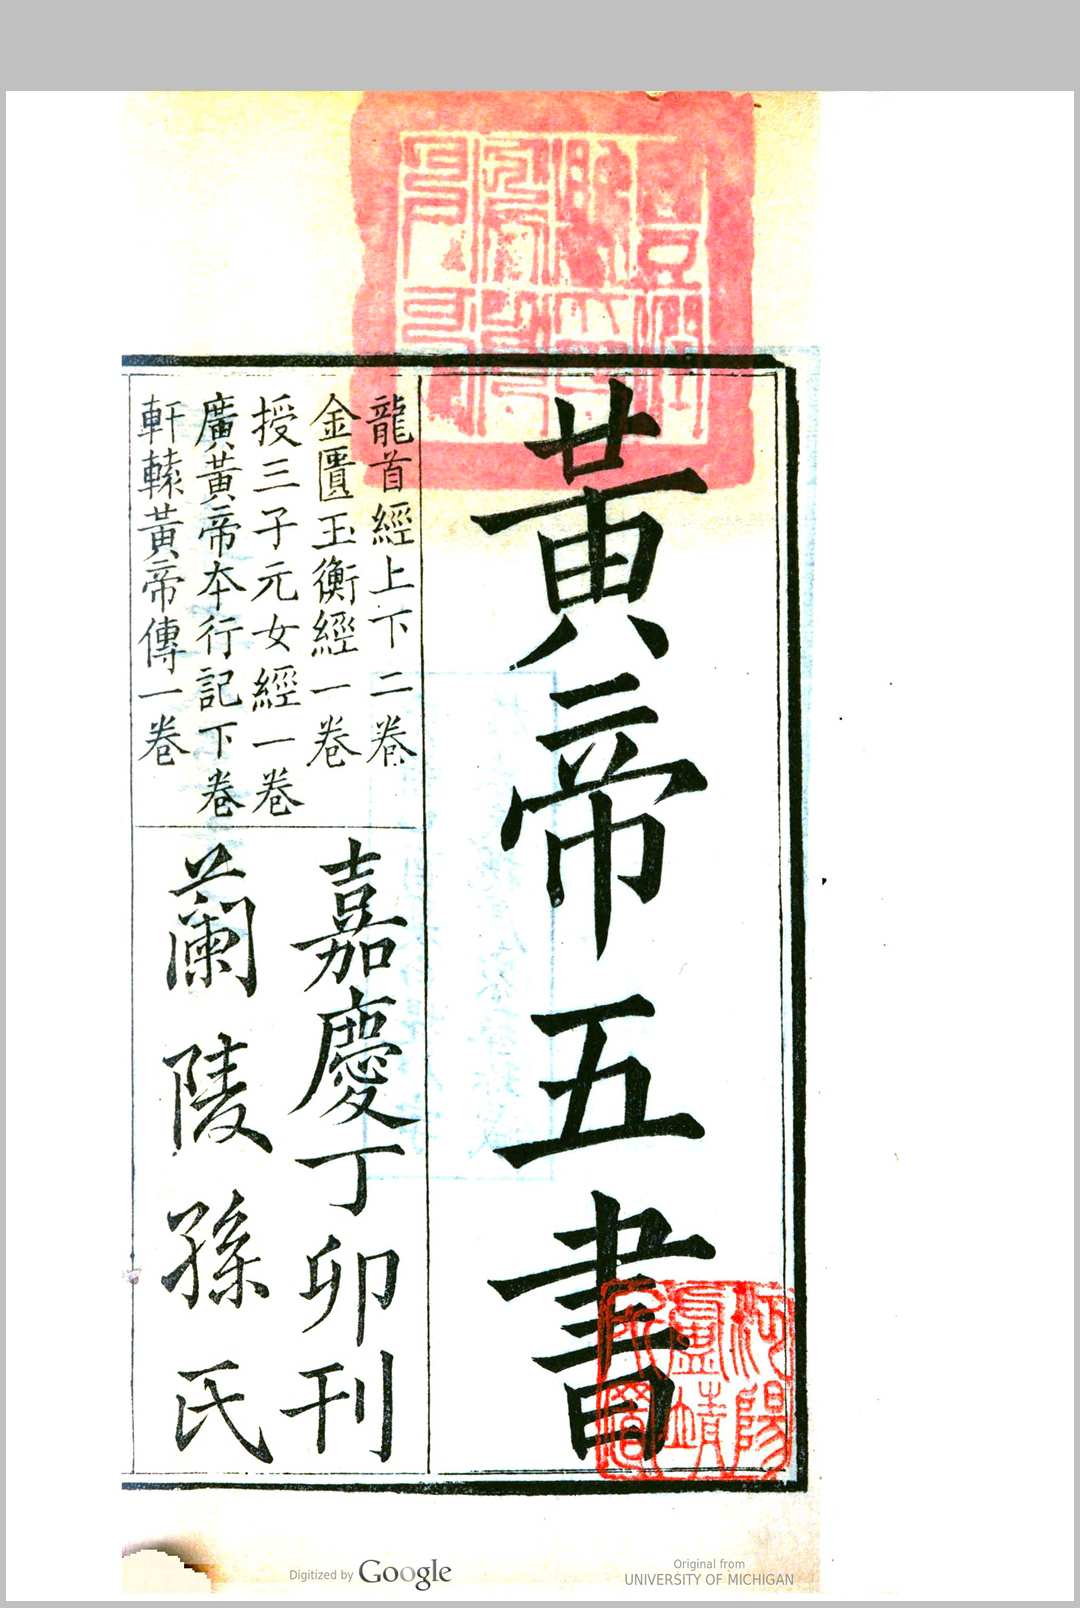 黃帝五書
龍首經上下二卷
金匱玉衡經一卷
授三子元女經一卷
廣黃帝本行記下卷
軒轅黃帝傳一卷
嘉慶丁卯刊
蘭陵孫氏
Digitized by Google
Original from
UNIVERSITY OF MICHIGAN